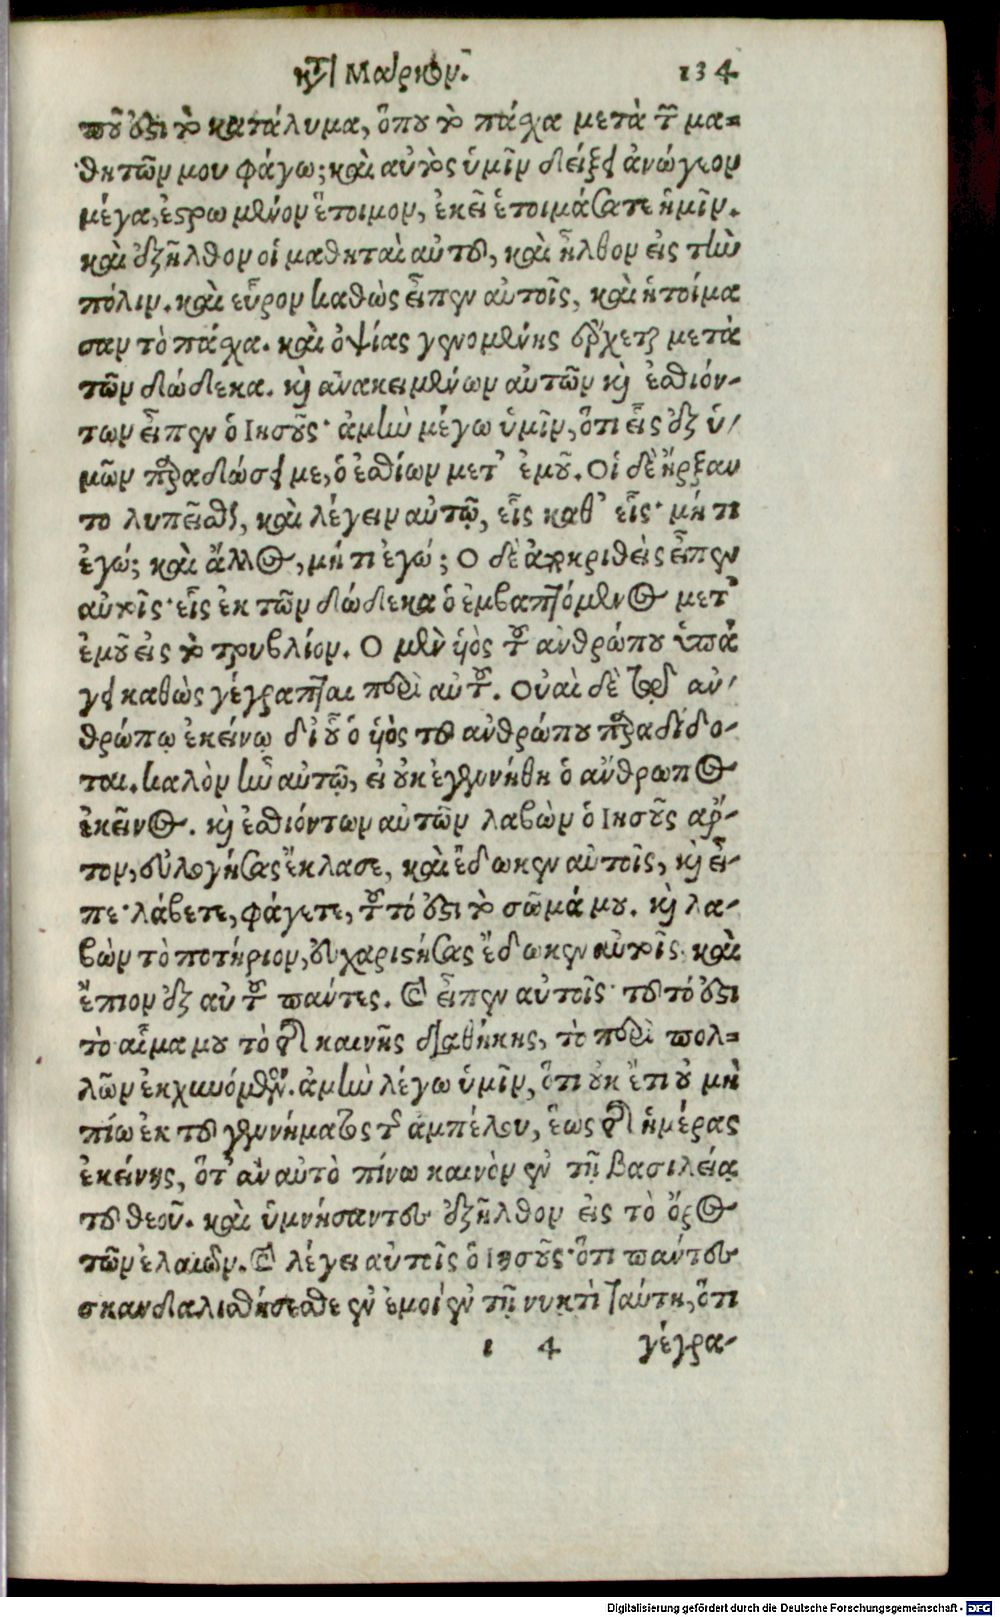 κτ Μάρκον. 134
ποῦ ἐστι τὸ κατάλυμα, ὅπου τὸ πάσχα μετὰ τῶν μα=
θητῶν μου φάγω; καὶ αὐτὸς ὑμῖν δείξει ἀνώγεον
μέγα, ἐστρωμένον ἕτοιμον, ἐκεῖ ἑτοιμάσατε ἡμῖν.
καὶ ἐξῆλθον οἱ μαθηταὶ αὐτοῦ, καὶ ἦλθον εἰς τὴν
πόλιν. καὶ εὗρον καθὼς εἶπεν αὐτοῖς, καὶ ἡτοίμα
σαν τὸ πάσχα. καὶ ὀψίας γενομένης ἔρχεται μετὰ
τῶν δώδεκα. καὶ ἀνακειμένων αὐτῶν καὶ ἐσθιόν-
των εἶπεν ὁ Ιησοῦς· ἀμὴν μέγω ὑμῖν, ὅτι εἷς ἐξ ὑ-
μῶν παραδώσει με, ὁ ἐσθίων μετ' ἐμοῦ. Οἱ δὲ ἤρξαν
το λυπεῖσθαι, καὶ λέγειν αὐτῷ, εἷς καθ' εἷς· μή τι
ἐγώ; καὶ ἄλλος, μή τι ἐγώ; Ο δὲ ἀποκριθεὶς εἶπεν
αὐτοῖς· εἷς ἐκ τῶν δώδεκα ὁ ἐμβαπτόμενος μετ'
ἐμοῦ εἰς τὸ τρυβλίον. Ο μὲν ὑὸς τοῦ ἀνθρώπου ὑπά
γει καθὼς γέγραπται περὶ αὐτοῦ. Οὐαὶ δὲ τῷ ἀν-
θρώπῳ ἐκείνῳ δι' οὗ ὁ ὑὸς τοῦ ἀνθρώπου παραδίδο-
ται. καλὸν ἦν αὐτῷ, εἰ οὐκ ἐγεννήθη ὁ ἄνθρωπος
ἐκεῖνος. καὶ ἐσθιόντων αὐτῶν λαβὼν ὁ Ιησοῦς ἄρ-
τον, εὐλογήσας ἔκλασε, καὶ ἔδωκεν αὐτοῖς, καὶ εἶ-
πε· λάβετε, φάγετε, τοῦτό ἐστι τὸ σῶμά μου. καὶ λα-
βὼν τὸ ποτήριον, εὐχαριστήσας ἔδωκεν αὐτοῖς. καὶ
ἔπιον ἐξ αὐτοῦ πάντες. Καὶ εἶπεν αὐτοῖς· τοῦτό ἐστι
τὸ αἷμα μου τὸ τῆς καινῆς διαθήκης, τὸ περὶ πολ=
λῶν ἐκχυνόμενον. ἀμὴν λέγω ὑμῖν, ὅτι οὐκ ἔτι οὐ μὴ
πίω ἐκ τοῦ γεννήματος τῆς ἀμπέλου, ἕως τῆς ἡμέρας
ἐκείνης, ὅτ' ἂν αὐτὸ πίνω καινὸν ἐν τῇ βασιλείᾳ
τοῦ θεοῦ. καὶ ὑμνήσαντες ἐξῆλθον εἰς τὸ ὄρος
τῶν ἐλαιῶν. Καὶ λέγει αὐτοῖς ὁ Ιησοῦς· ὅτι πάντες
σκανδαλισθήσεσθε ἐν ἐμοὶ ἐν τῇ νυκτὶ ταύτῃ, ὅτι
1 4 γέγρα-
Digitalisierung gefördert durch die Deutsche Forschungsgemeinschaft - DFG